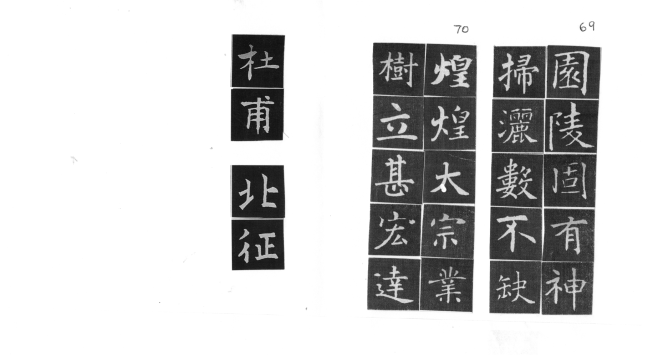 69
園陵固有神
掃灑數不缺
70
煌煌太宗業
樹立甚宏達
杜甫
北征